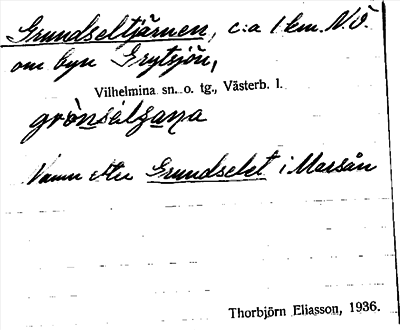 Grundseltjärnen, c:a 1 km. N.ö.
om byn Grytsjön,
Vilhelmina sn. o. tg., Västerb. l.
Namn efter Grundselet i Marsån
Thorbjörn Eliasson, 1936.